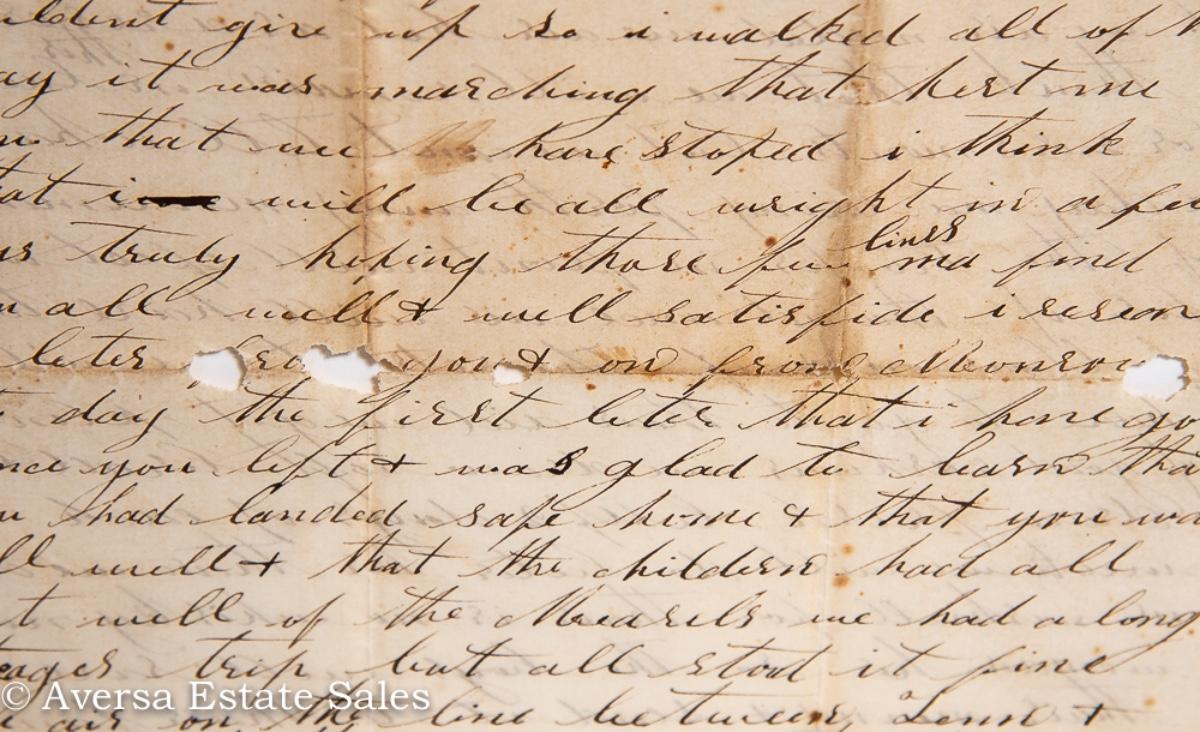 uldent give up so i walked all of
ay it was marching that hert me
that we have stoped i think
at i will be all wright in a few
truly hoping those few lines ma find
all well & well satisfide i
leter fro you & on from Meonroe
day the first leter that i have go
nce you left & was glad to learn tha
had landed safe home & that you wa
ll well & that the childern had all
t well of the Measels we had a long
trip but all stod it fine
on the line between Tenn &
© Aversa Estate Sales